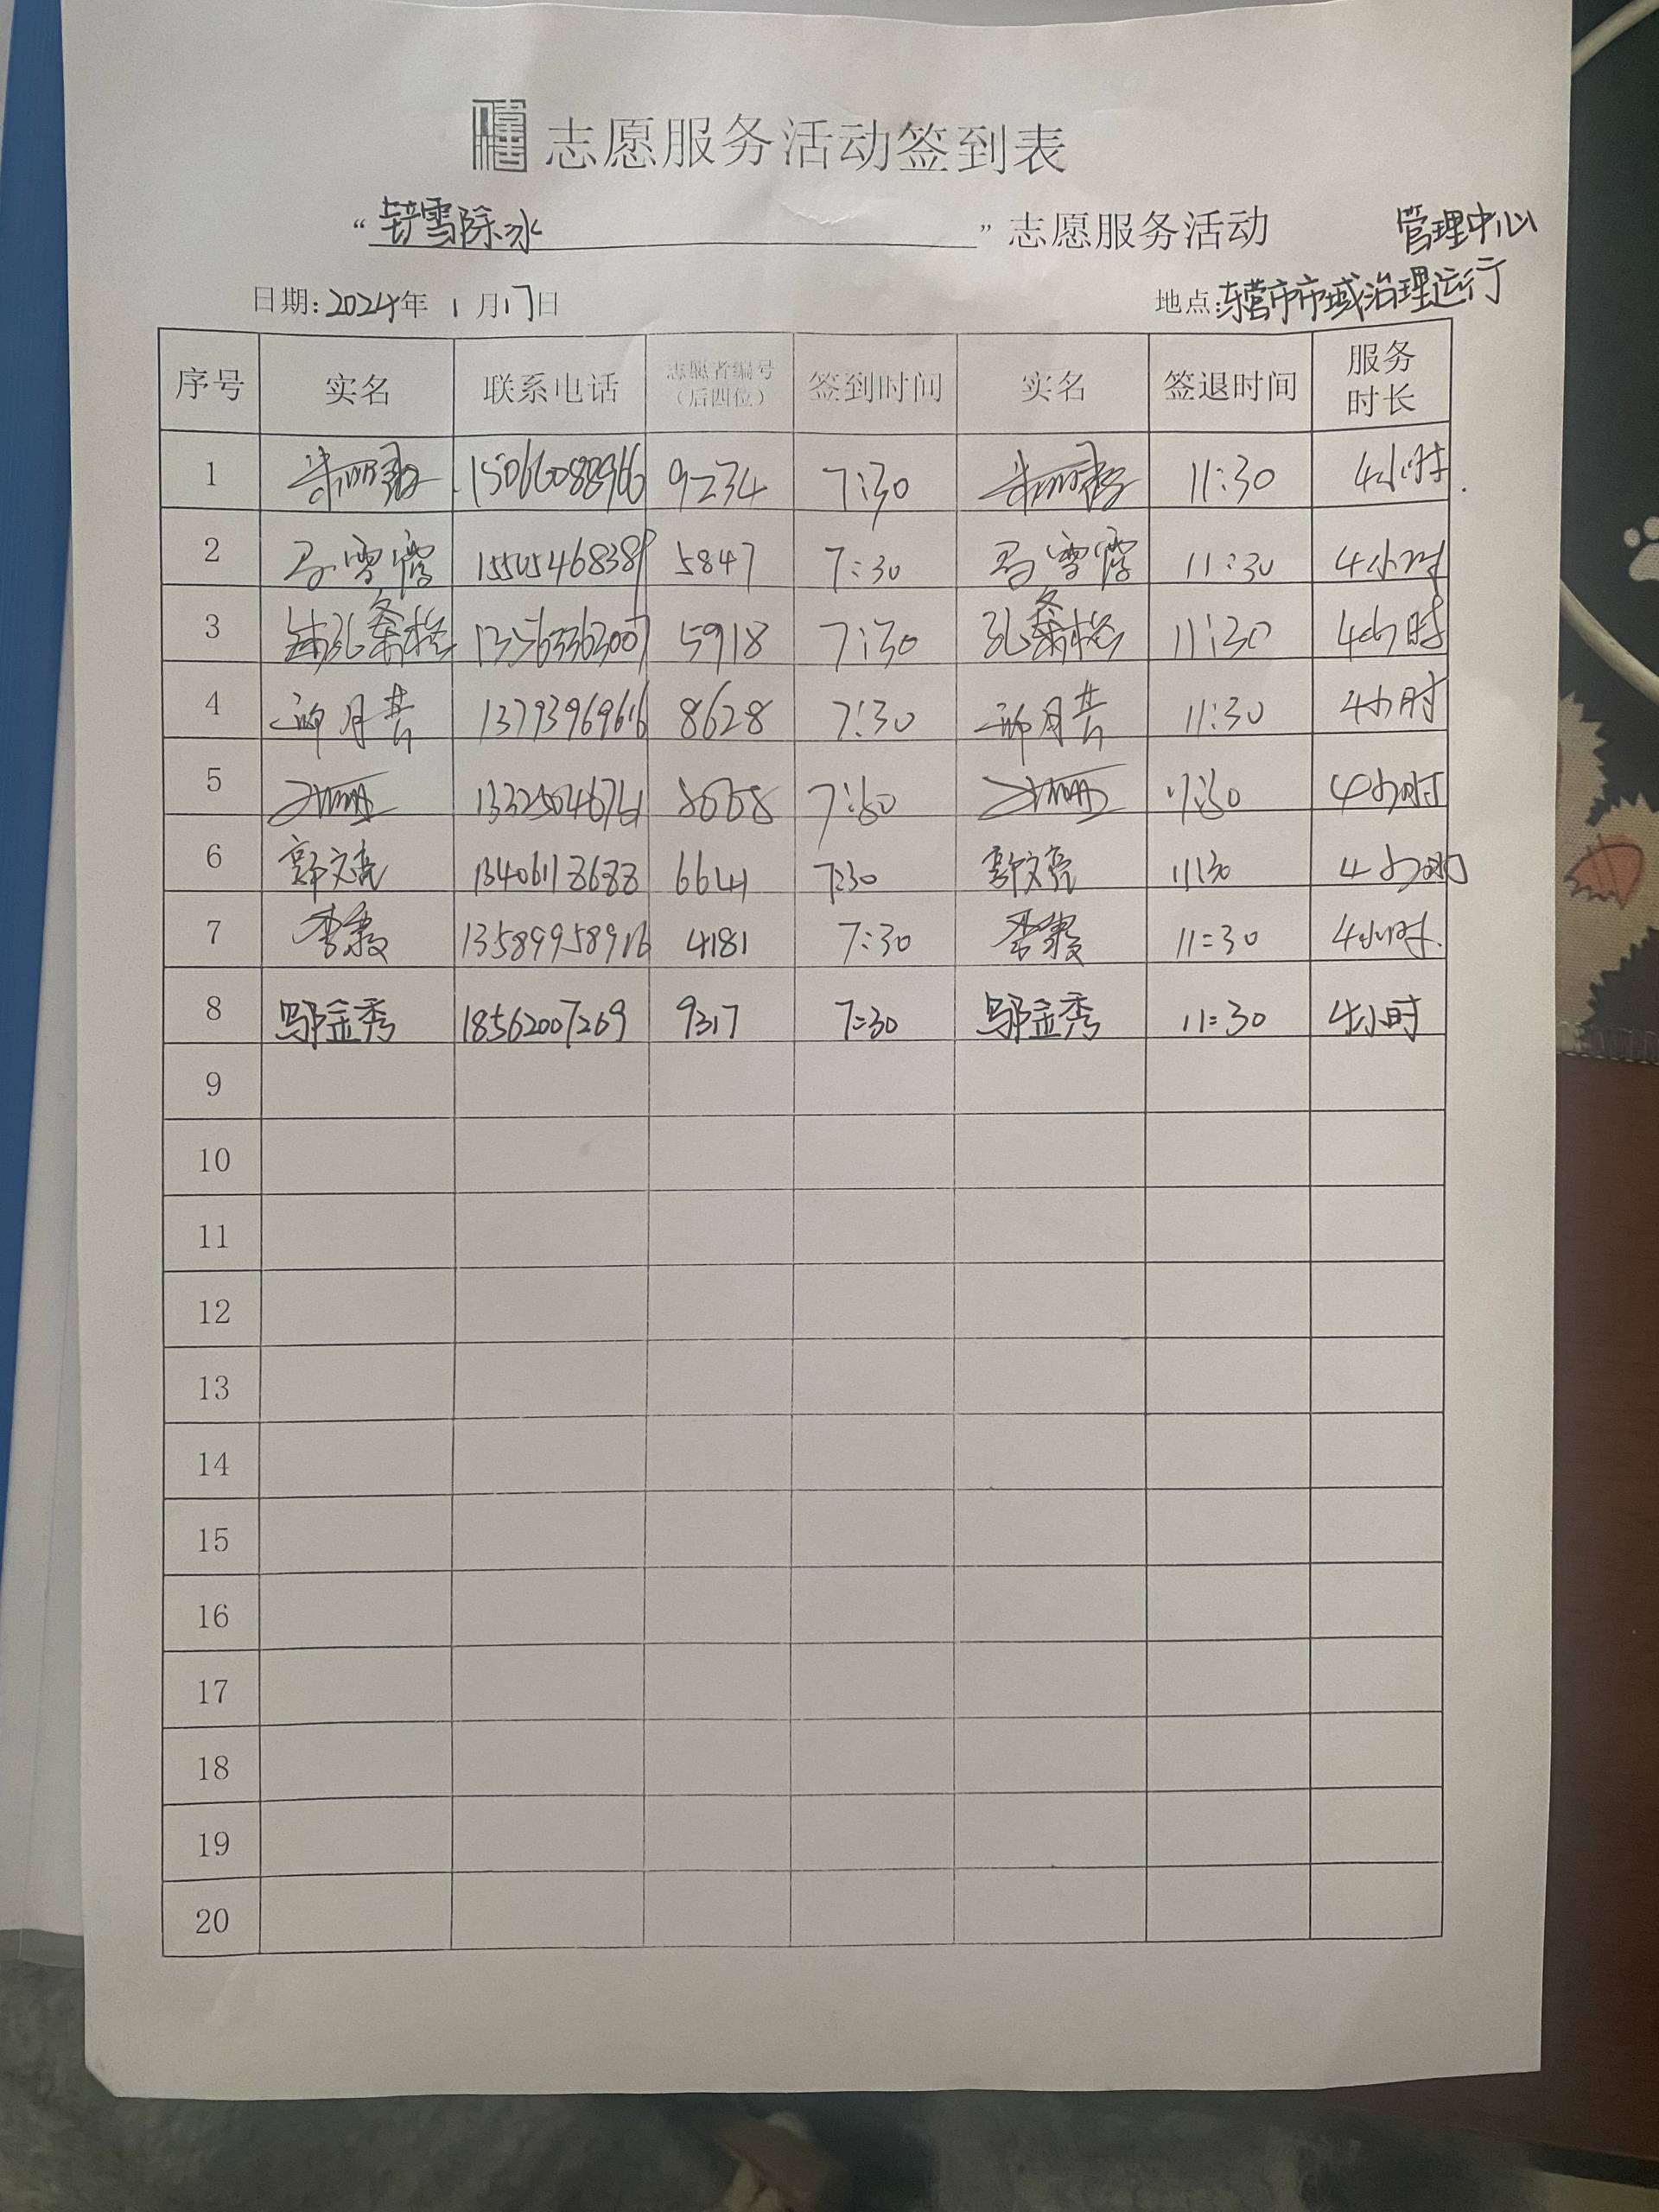 志愿服务活动签到表
“铲雪除冰”志愿服务活动
管理中心
日期:2024年1月17日 地点:东营市市域治理运行
序号 实名 联系电话 志愿者编号(后四位) 签到时间 实名 签退时间 服务时长
1 15066088966 9234 7:30 11:30 4小时
2 15505468389 5847 7:30 11:30 4小时
3 5918 7:30 11:30 4小时
4 月 13793969616 8628 7:30 月 11:30 4小时
5 7:30 4小时
6 郭文亮 13406118688 6641 7:30 郭文亮 11:30 4小时
7 13589958916 4181 7:30 11:30 4小时
8 邬金秀 18562007269 9317 7:30 邬金秀 11:30 4小时
9
10
11
12
13
14
15
16
17
18
19
20